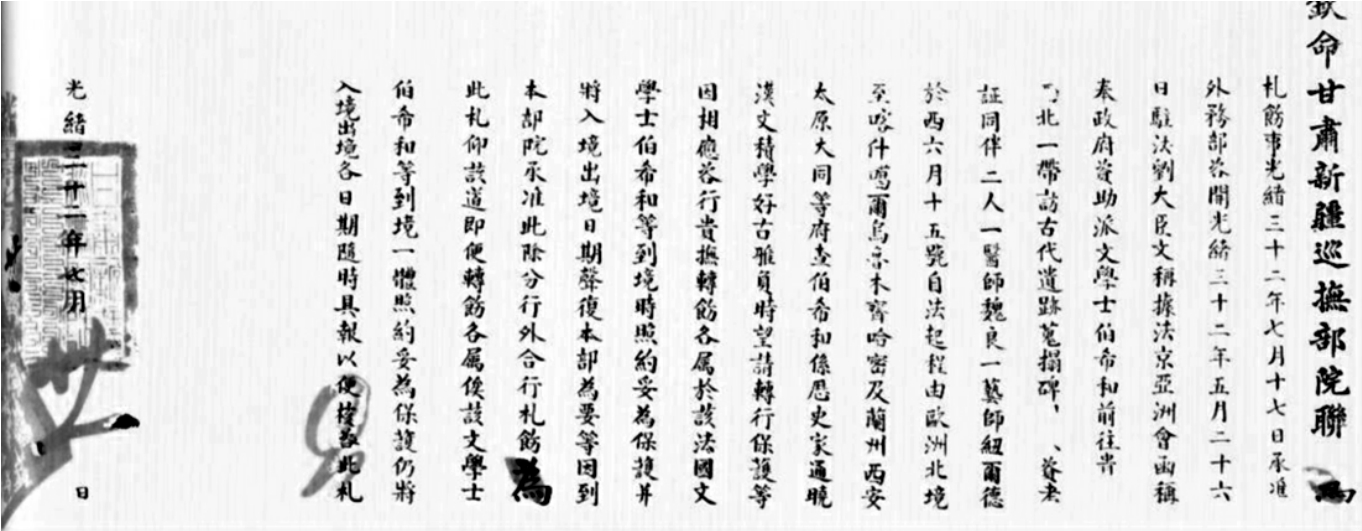 欽命甘肅新疆巡撫部院聯 為
札飭事光緒三十二年七月十七日承准
外務部咨開光緒三十二年五月二十六
日駐法劉大臣文稱據法京亞洲會函稱
奉政府資助派文學士伯希和前往貴
北一帶訪古代遺跡蒐搨碑
証同伴二人一醫師魏良一墓師紐爾德
於西六月十五號自法起程由歐洲北境
至喀什噶爾烏魯木齊哈密及蘭州西安
太原大同等府查伯希和係歷史家通曉
漢文積學好古雅負時望請轉行保護等
因相應咨行貴撫轉飭各属於該法國文
學士伯希和等到境時照約妥為保護并
將入境出境日期聲復本部為要等因到
本部院承准此除分行外合行札飭為
此札仰該道即便轉飭各属俟該文學士
伯希和等到境一體照約妥為保護仍將
入境出境各日期隨時具報以便核此札
光緒三十二年七月 日